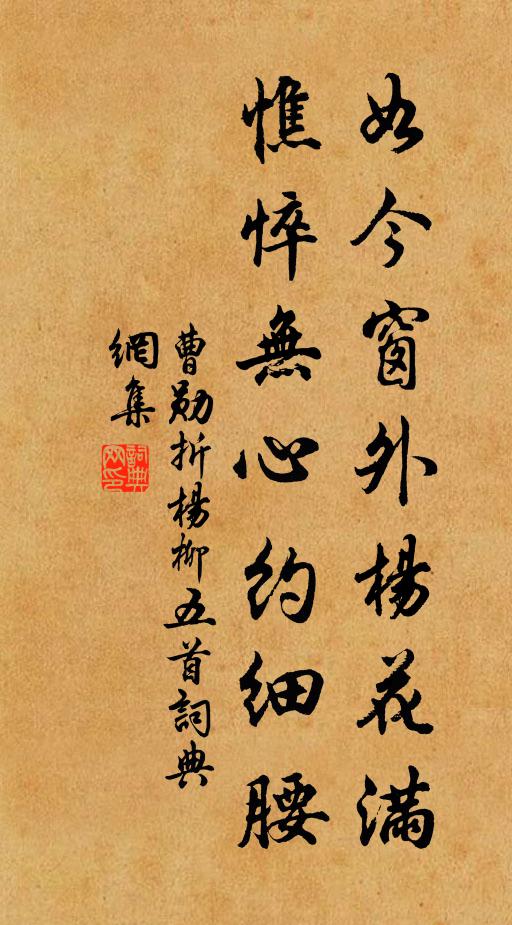 如今窗外楊花滿
憔悴無心約細腰
曹勛折楊柳五首詞典
網集
詞典
网印